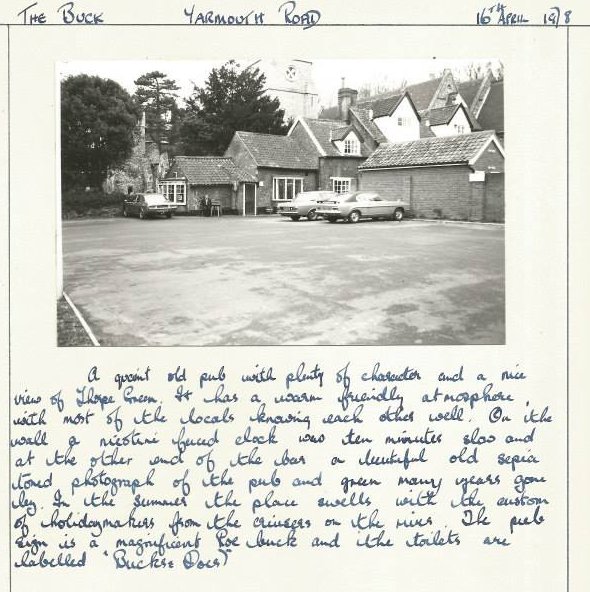 The Buck Yarmouth Road 16TH April 1978
A quaint old pub with plenty of character and a nice
view of Thorpe Green. It has a warm friendly atmosphere
with most of the locals knowing each other well. On the
wall a nicotine fumed clock was ten minutes slow and
at the other end of the bar a beutiful old sepia
toned photograph of the pub and green many years gone
by. In the summer the place swells with the custom
of holidaymakers from the cruisers on the river. The pub
sign is a magnificent Roe buck and the toilets are
labelled "Bucks & Does"